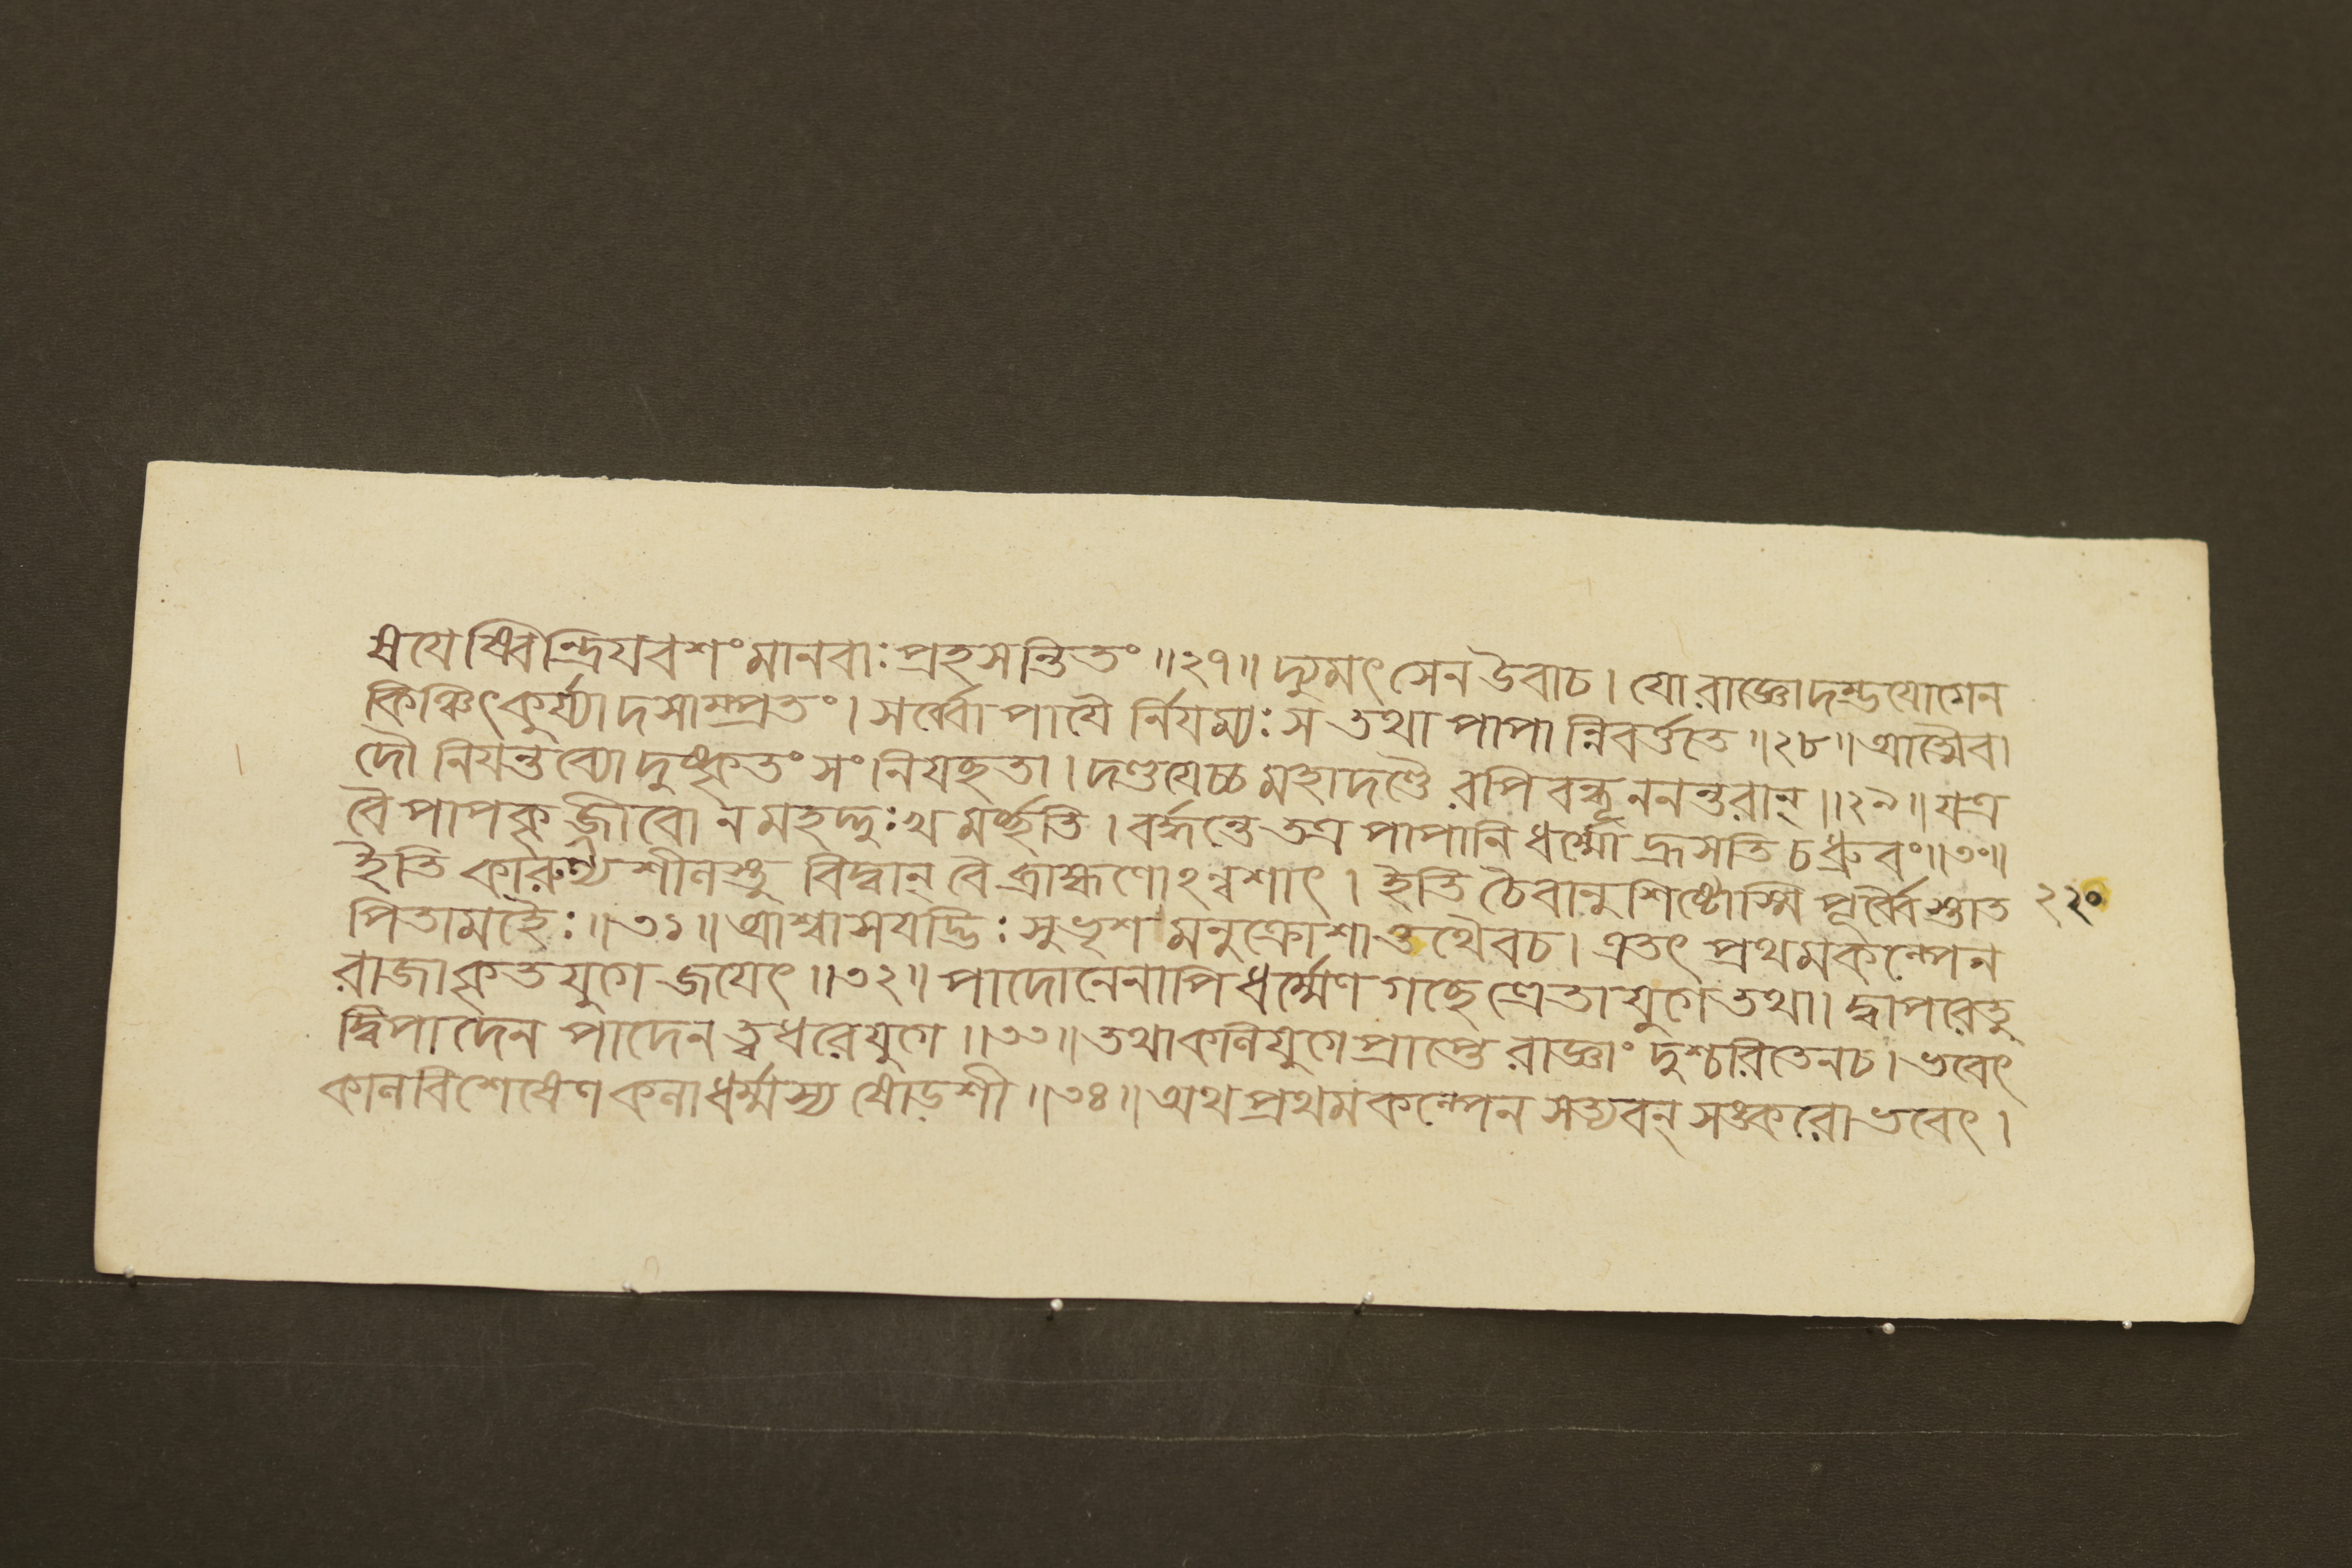 ষযেষ্বিন্দ্রিযবশং মানবাঃ প্রহসন্তি তং ॥২৭॥ দ্যুমৎসেন উবাচ। যো রাজ্ঞো দম্ভযোগেন
কিঞ্চিৎ কুর্য্যাদসাম্প্রতং। সর্ব্বোপাযৈ র্নিযম্যঃ স তথা পাপান্নিবর্ত্ততে ॥২৮॥ আত্মৈবা
দৌ নিযন্তব্যো দুষ্কৃতং সংনিযচ্ছতা। দণ্ডযেচ্চ মহাদণ্ডৈ রপি বন্ধূননন্তরান্ ॥২৯॥ যত্র
বৈ পাপকৃজ্জীবো ন মহদ্দুঃখ মর্চ্ছতি। বর্দ্ধন্তে তত্র পাপানি ধর্ম্মো হ্রসতি চ ধ্রুবং ॥৩০॥
ইতি কারুণ্য শীলস্তু বিদ্বান্ বৈ ব্রাহ্মণোঽন্বশাৎ। ইতি চৈবানুশিষ্টোস্মি পূর্ব্বৈস্তাত ২২০
পিতামহৈঃ ॥৩১॥ আশ্বাসযদ্ভিঃ সুভৃশ মনুক্রোশাত্তথৈবচ। এতৎ প্রথমকল্পেন
রাজা কৃতযুগে জযেৎ ॥৩২॥ পাদোনেনাপি ধর্ম্মেণ গচ্ছে ত্রেতাযুগে তথা। দ্বাপরে তু
দ্বিপাদেন পাদেন ত্বধরে যুগে ॥৩৩॥ তথা কলিযুগে প্রাপ্তে রাজ্ঞাং দুশ্চরিতেন চ। ভবেৎ
কালবিশেষেণ কলা ধর্ম্মস্য ষোড়শী ॥৩৪॥ অথ প্রথমকল্পেন সত্যবন্ সঙ্করো ভবেৎ।